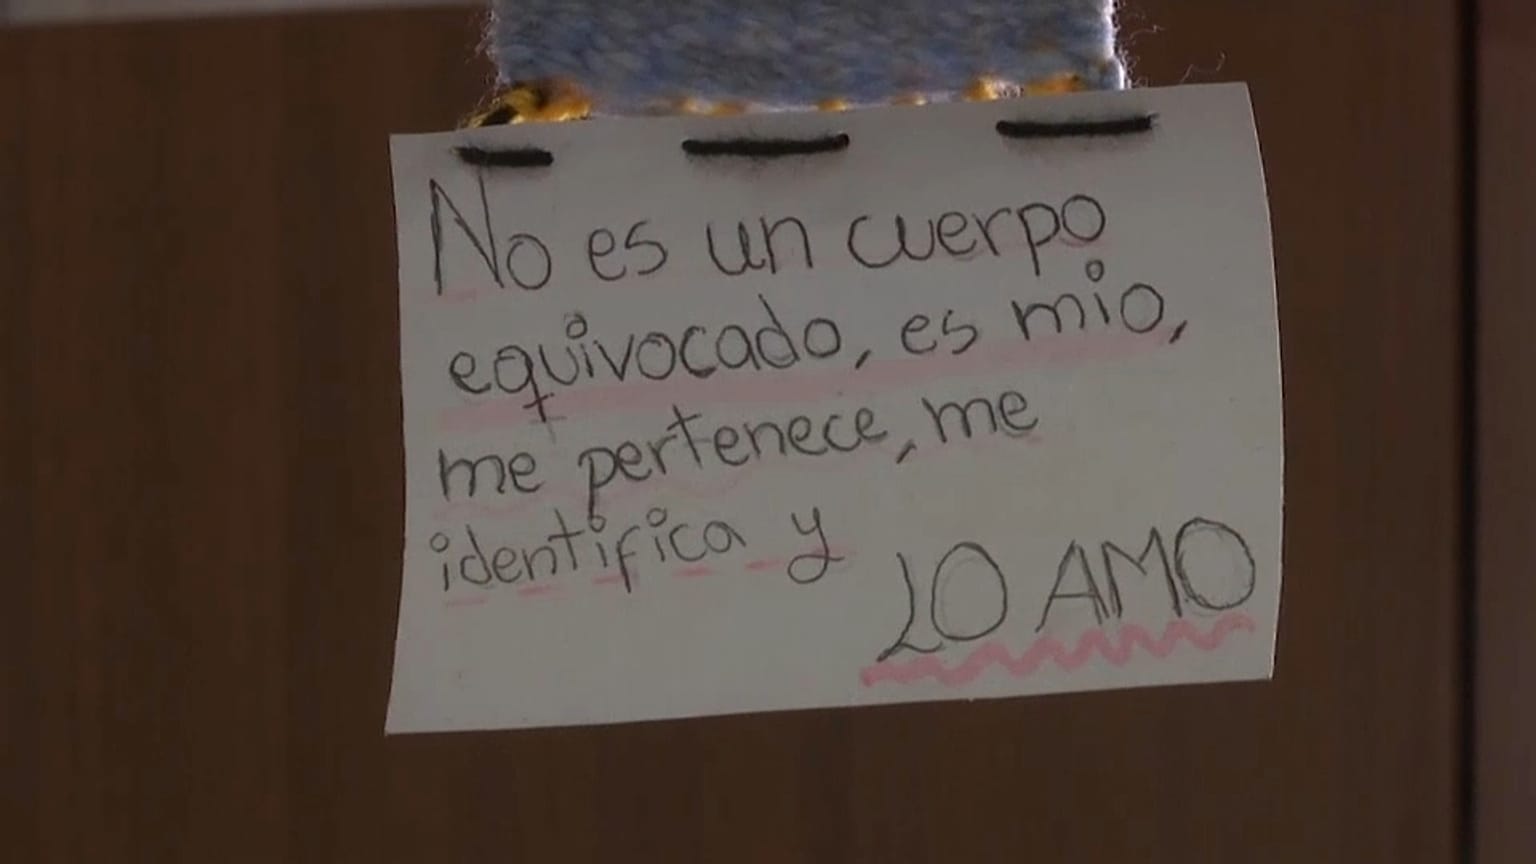 No es un cuerpo
equivocado, es mio,
me pertenece, me
identifica y
LO AMO